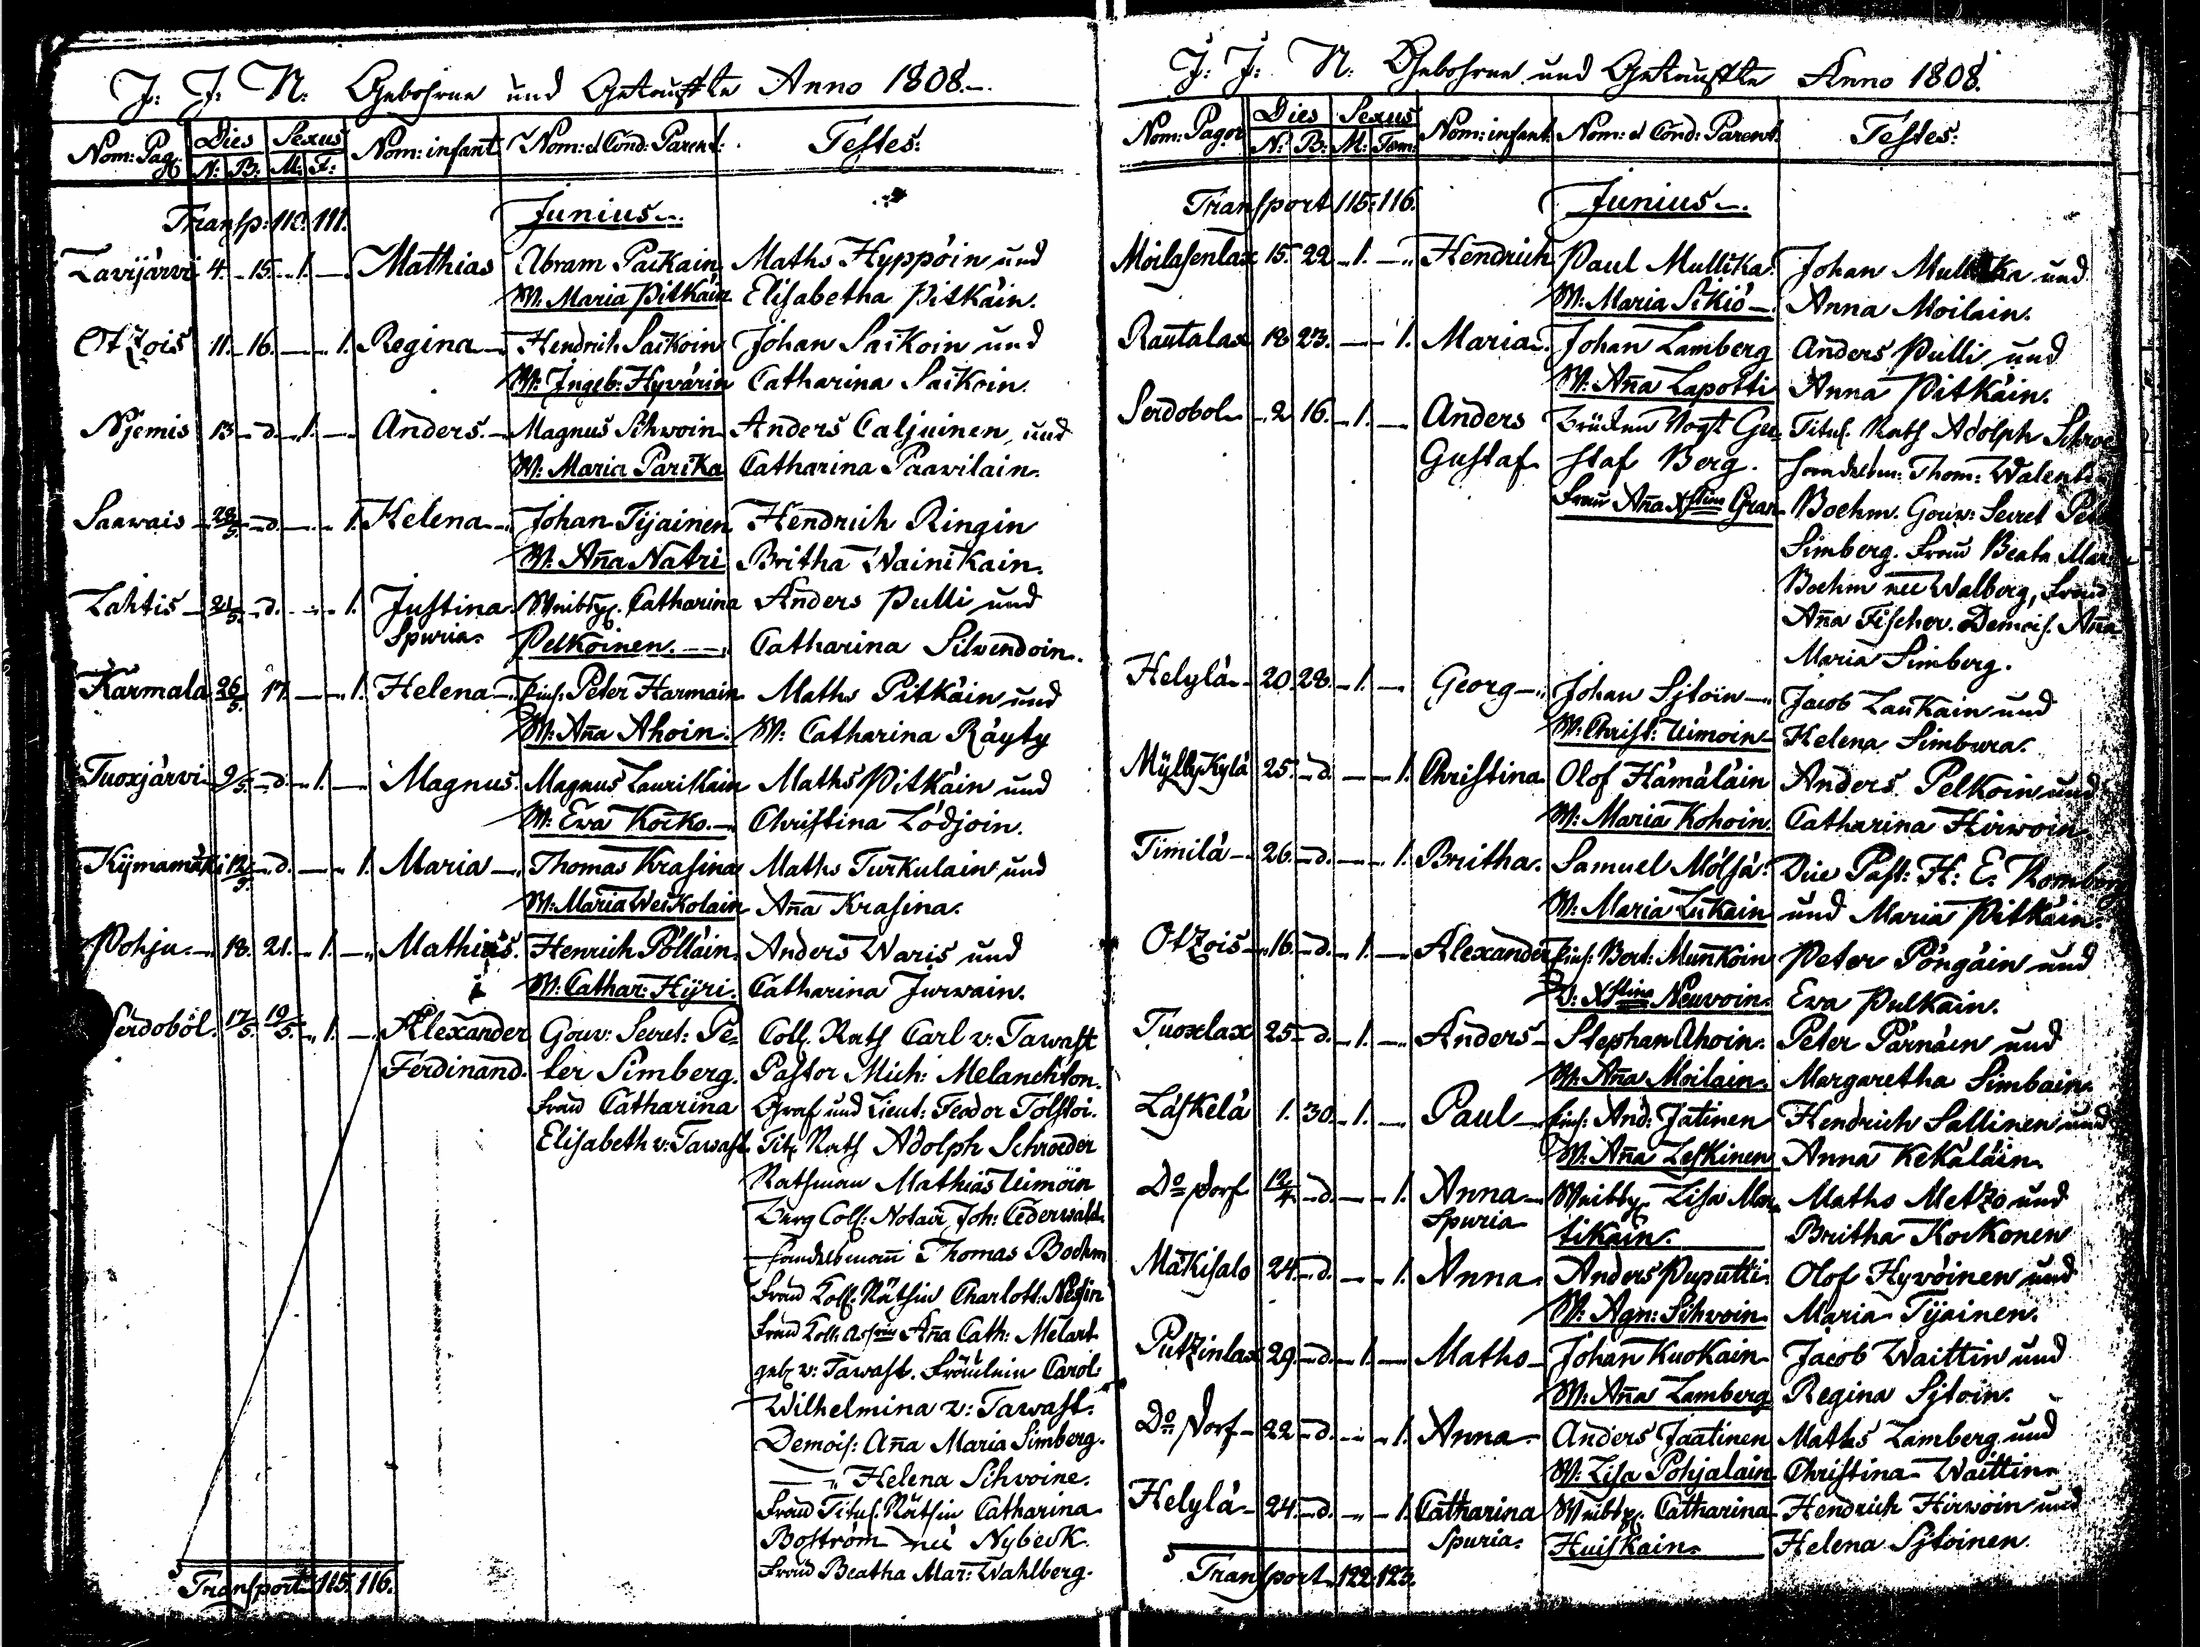 J. J. N. Gebohrne und Getauffte Anno 1808.
Nom: Pag: Dies Sexus Nom: infant Nom: et Cond: Parent: Testes:
N: B: M: F:
Transp: 112. 111. Junius
Lavijärvi 4. 15. 1. Mathias Abram Paikain Maths Hyppöin und
W: Maria Pitkäin Elisabetha Pitkäin.
Otzois 11. 16. 1. Regina Hendrich Saikoin Johan Saikoin und
W: Ingeb: Hyvärin Catharina Saikoin.
Njemis 13 d. 1. Anders. Magnus Sihwoin Anders Caljuinen, und
W: Maria Parika Catharina Paawilain.
Saawais 28/5. d. 1. Helena Johan Tijainen Hendrich Ringin
W: Aña Natri Britha Wainikain.
Lahtis 21/5. d. 1. Justina Weibsp. Catharina Anders Pulli und
Spuria. Pelkoinen. Catharina Silvendoin.
Karmala 26/5. 17. 1. Helena Einh. Peter Harmain Maths Pitkäin und
W: Aña Ahoin. W: Catharina Räyty
Tuoxjärvi 9/5. d. 1. Magnus. Magnus Laurikain Maths Pitkäin und
W: Ewa Kocko. Christina Lödjoin.
Kijmamäki 12/5. d. 1. Maria Thomas Krasina Maths Turkulain und
W: Maria Weikolain Aña Krasina.
Pohju 18. 21. 1. Mathias. Henrich Pölläin. Anders Waris und
W: Cathar: Hyri. Catharina Jurwain.
Serdobol. 17/5. 19/5. 1. Alexander Gouv: Secret: Pe= Coll. Rath Carl v: Tawast
Ferdinand. ter Simberg. Pastor Mich: Melanchton.
Frau Catharina Graf und Lieut: Feodor Tolstoi.
Elisabeth v: Tawast. Tit. Rath Adolph Schroeder
Rathman Mathias Uimoin
Burg Coll: Notair Joh: Cederwald.
Handelsmañ Thomas Boehm
Frau Koll. Räthin Charlott: Nesin
Frau Koll: Aña Cath: Melart
geb. v: Tawast. Fräulein Carol:
Wilhelmina v: Tawast.
Demois: Aña Maria Simberg.
" Helena Sihvoine.
Frau Titul. Räthin Catharina
Boström neé Nybeck.
Frau Beatha Mar: Wahlberg.
Transport. 115. 116.
J. J. N. Gebohrne und Getauffte Anno 1808.
Nom: Pagor Dies Sexus Nom: infant. Nom: et Cond: Parent. Testes:
N: B: M: Fœm:
Transport 115. 116. Junius
Moilasenlax 15. 22. 1. Hendrich Paul Mullika. Johan Mullika und
W: Maria Sikiö Anna Moilain.
Rautalax 18 23. 1. Maria Johan Lamberg Anders Pulli und
W: Aña Lapotti Anna Pitkäin.
Serdobol 2 16. 1. Anders Brücken Vogt Gu= Titul. Rath Adolph Schroe
Gustaf staf Berg. Handelsm: Thom: Walent
Frau Aña Xstina Gran Boehm. Gouv: Secret Pet
Simberg. Frau Beata Mar
Boehm neé Walberg, Frau
Aña Fischer. Demois. Aña
Maria Simberg.
Helylä 20. 28. 1. Georg Johan Sjtoin Jacob Laukain und
W: Christ: Uimoin Helena Simbura.
Myllykylä 25. d. 1. Christina Olof Hämäläin Anders Pelkoin und
W: Maria Kohoin. Catharina Hirwoin.
Timilä 26. d. 1. Britha. Samuel Mölsä. Die Past: H: E. Thomberg
W: Maria Lukain und Maria Pitkäin.
Otzois 16. d. 1. Alexander Einh: Bert: Munkoin Peter Pöngäin und
W: Xstina Neuvoin. Ewa Pulkain.
Tuoxlax 25 d. 1. Anders Stephan Ahoin. Peter Pärnäin und
W: Aña Moilain. Margaretha Simbain.
Läskelä 1. 30. 1. Paul Einh: And: Jatinen Hendrich Sallinen und
W: Aña Leskinen Anna Kekäläin.
Do Dorf 12/4. d. 1. Anna Weibsp. Lisa Mar= Maths Metzo und
Spuria tikain. Britha Kockonen
Mäkisalo 24. d. 1. Anna Anders Puputti Olof Hyvöinen und
W: Agn: Sihvoin Maria Tijainen.
Putzinlax 29. d. 1. Maths Johan Kuokain Jacob Waittin und
W: Aña Lamberg Regina Sjtoin.
Do Dorf 22 d. 1. Anna Anders Jaatinen Maths Lamberg und
W: Lisa Pohjalain Christina Waittin
Helylä 24. d. 1. Catharina Weibsp. Catharina Hendrich Hirwoin und
Spuria. Huiskain. Helena Sjtoinen.
Transport. 122. 123.